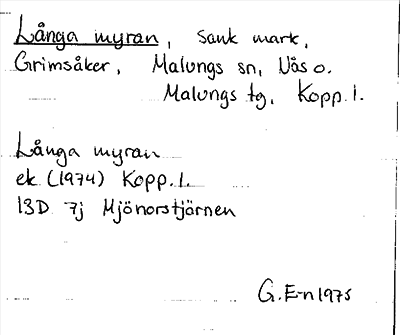 Långa myran, sank mark,
Grimsåker, Malungs sn, Nås o.
Malungs tg, Kopp. l.
Långa myran
ek (1974) Kopp. l.
13D 7j Mjönorstjärnen
G. E-n 1975